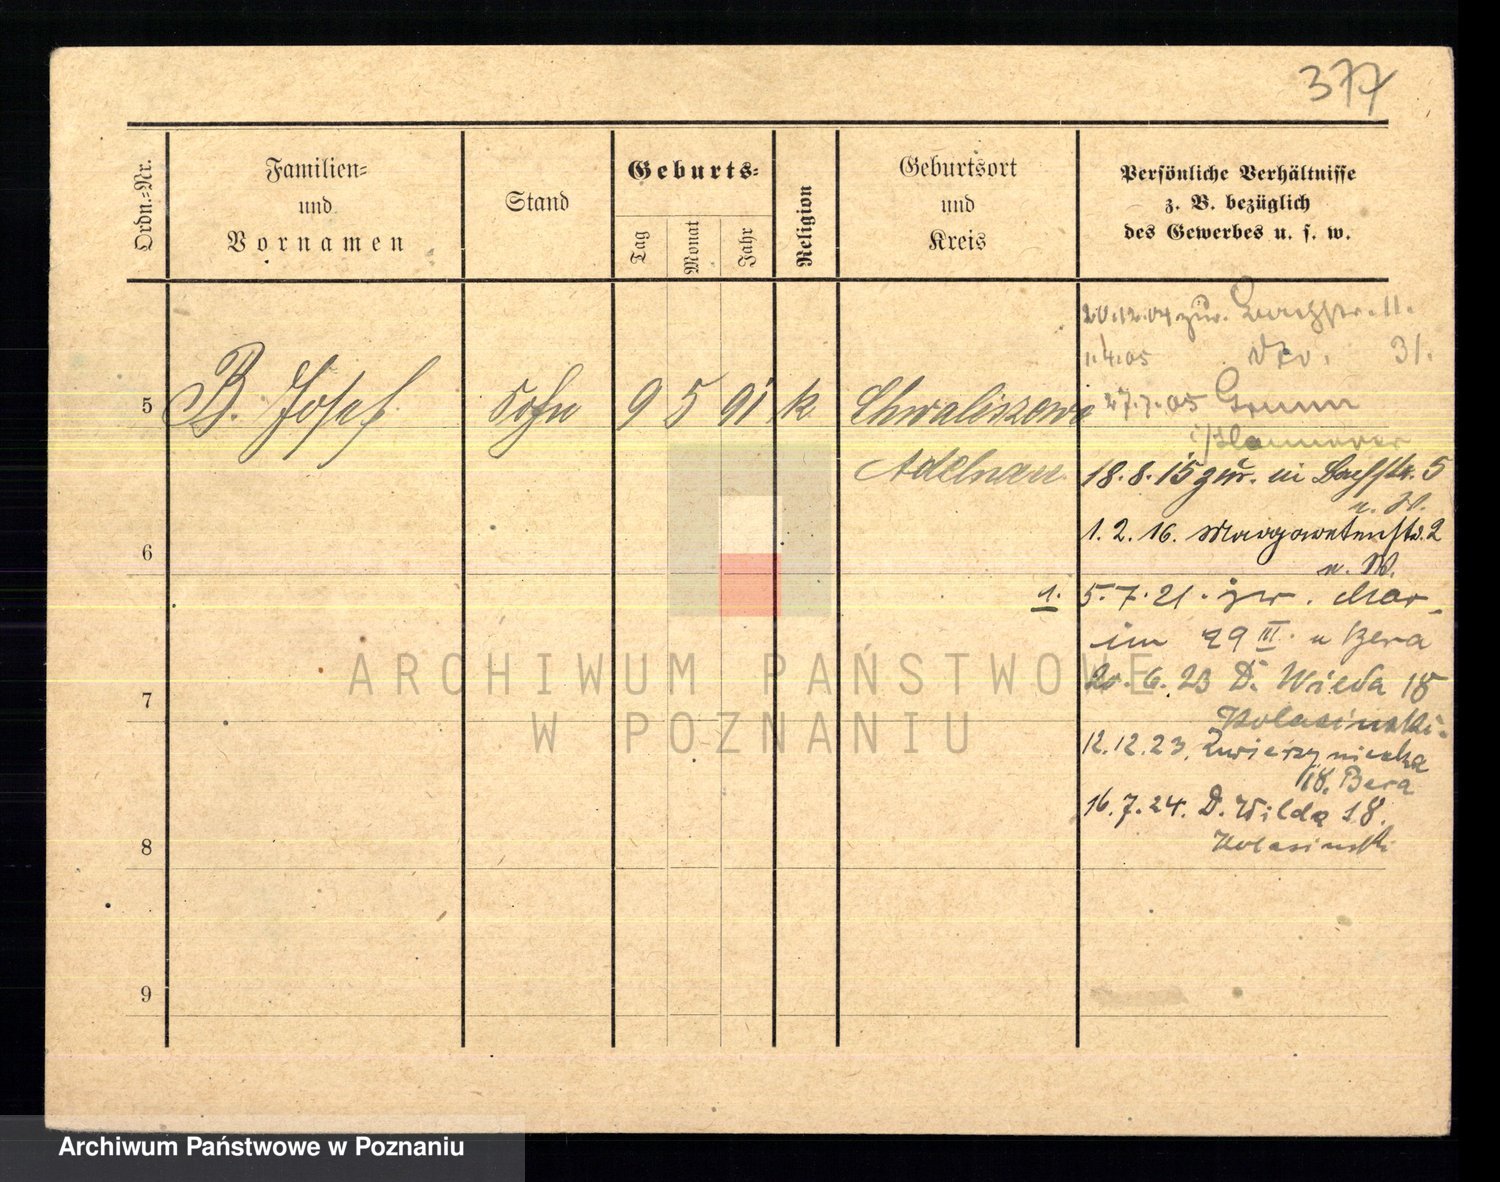 377
Ordn.-Nr.
Familien-
und
Vornamen
Stand
Geburts-
Tag
Monat
Jahr
Religion
Geburtsort
und
Kreis
Persönliche Verhältnisse
z. B. bezüglich
des Gewerbes u. s. w.
20.12.04 zur. 11.
1.4.05 31.
5 B. Josef Sohn 9 5 91 k Chwaliszewo
27.7.05
i/Hannover
Adelnau
18.8.15 zur. in Bachstr. 5
u. W.
1.2.16. Margaretenstr. 2
u. W.
6
1. 5.7.21. zur. Mar-
cin 29 III. u Bera
20.6.23 D. Wilda 18
Kolasinski.
7
12.12.23. Zwierzyniecka
18. Bera
16.7.24. D. Wilda 18.
Kolasinski
8
9
ARCHIWUM PAŃSTWOWE
W POZNANIU
Archiwum Państwowe w Poznaniu